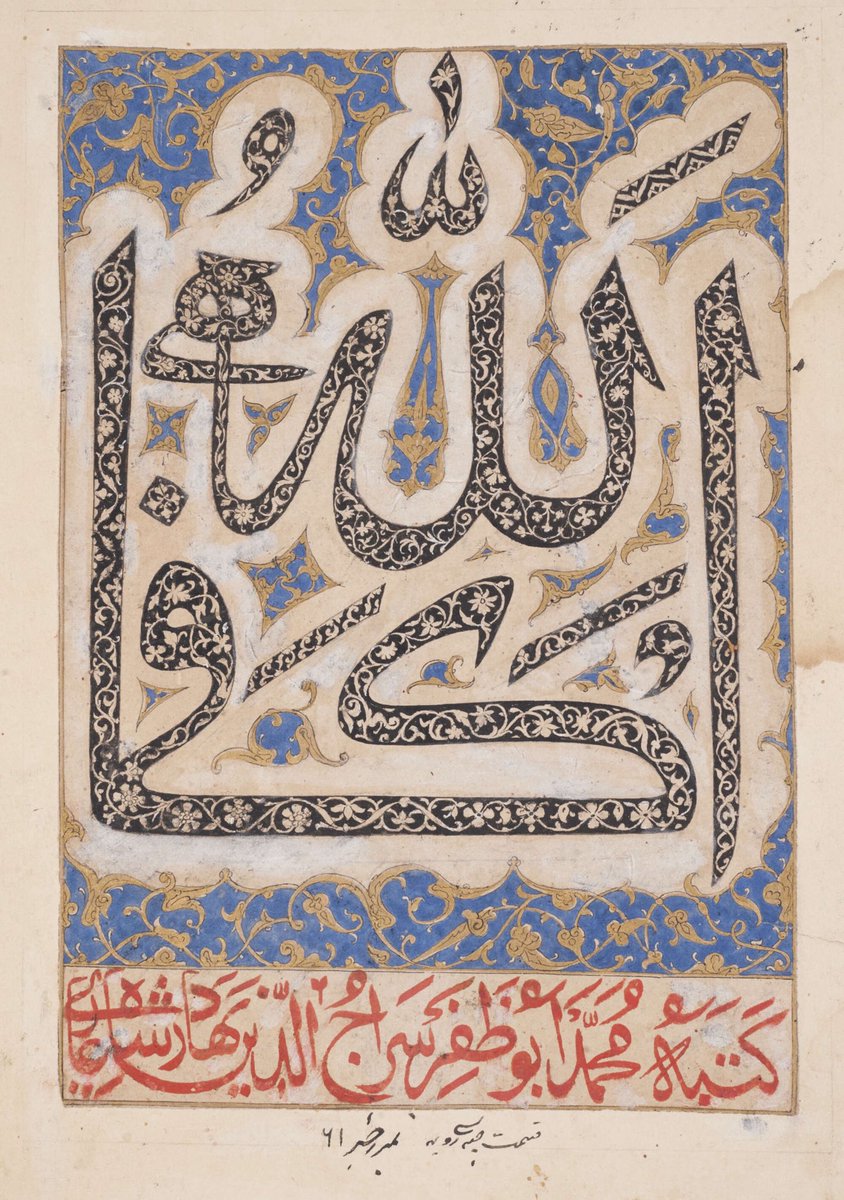 الله
وكفا
كتبه محمد ابو ظفر سراج الدين بهادر شاه غازي
قیمت روپیہ نمبر ۶۱